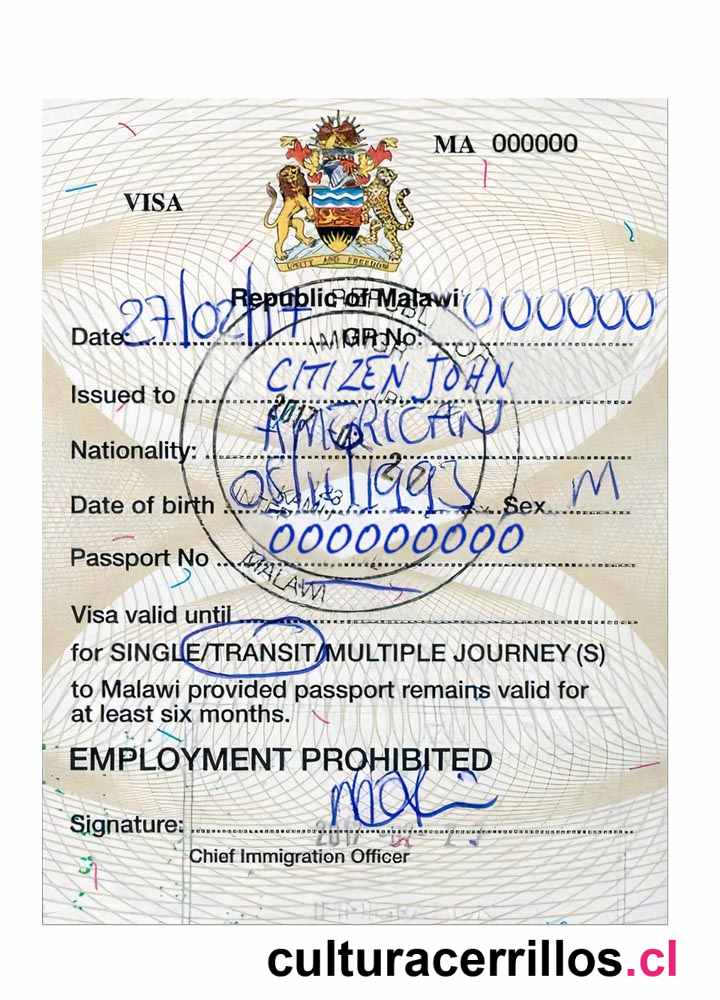 MA 000000
VISA
UNITY AND FREEDOM
Republic of Malawi
Date: 27/02/17 GR No: 000000
Issued to CITIZEN JOHN
Nationality: AMERICAN
Date of birth 1993 Sex M
Passport No 000000000
Visa valid until
for SINGLE/TRANSIT/MULTIPLE JOURNEY (S)
to Malawi provided passport remains valid for
at least six months.
EMPLOYMENT PROHIBITED
Signature:
Chief Immigration Officer
REPUBLIC OF
MALAWI
culturacerrillos.cl